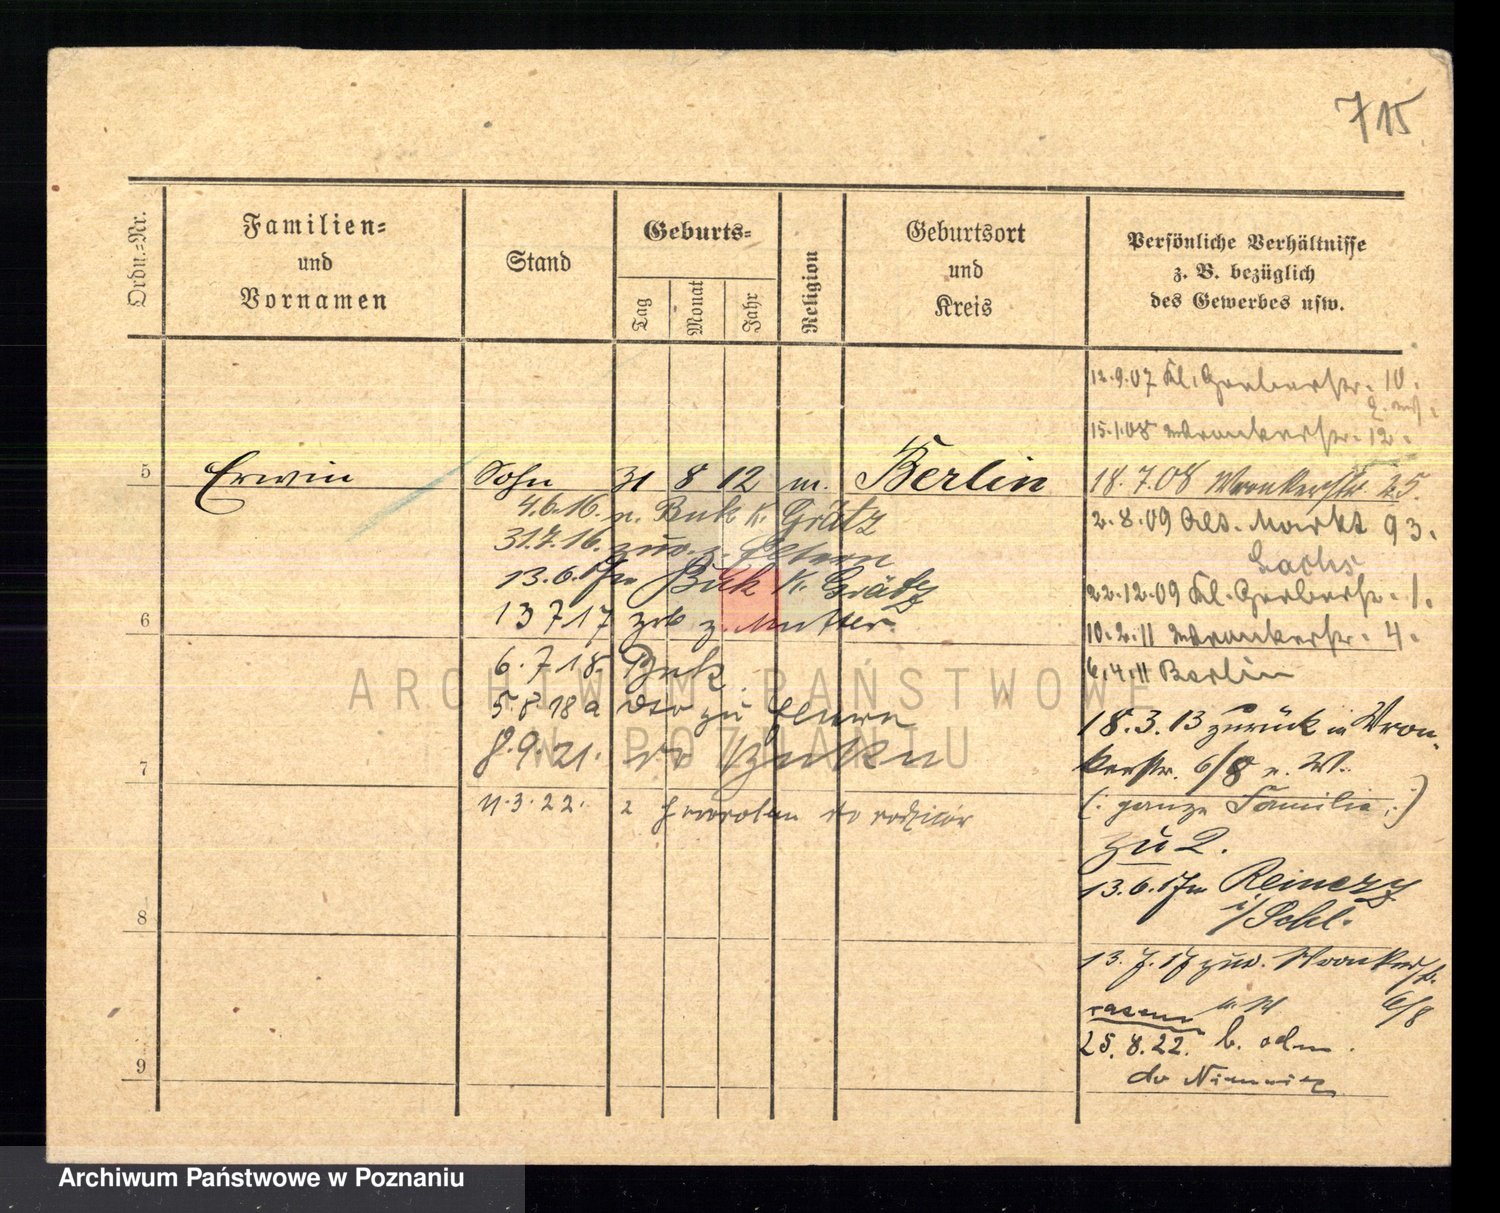 715
Ordn.=Nr.
Familien=
und
Vornamen
Stand
Geburts=
Tag
Monat
Jahr
Religion
Geburtsort
und
Kreis
Persönliche Verhältnisse
z. B. bezüglich
des Gewerbes usw.
5
Erwin Sohn 31 8 12 m. Berlin
4.6.16. n. Buk K. Grätz
31.7.16. zur. z. Eltern
13.6.17 n Buk K. Grätz
6
13 7 17 z. Mutter
6.7.18. Buk
5 8 18 a dto zu Eltern
8.9.21. do Buku
7
11.3.22. z powrotem do rodziców
8
9
12.9.07 Kl. Gerberstr. 10.
15.1.08 Wronkerstr. 12.
18.7.08 Wronkerstr 25.
2.8.09 Alt. Markt 93.
Sachs
22.12.09 Kl. Gerberstr. 1.
10.2.11 Wronkerstr. 4.
6.4.11 Berlin
18.3.13 zurück in Wron-
kerstr. 6/8 n. W.
(: ganze Familie :)
zu 2.
13.6.17 n Reinerz
i/Schl.
13.7.17 zur. Wronkerstr.
6/8
razem
25.8.22. b. odm.
do Niemiec
ARCHIWUM PAŃSTWOWE
W POZNANIU
Archiwum Państwowe w Poznaniu